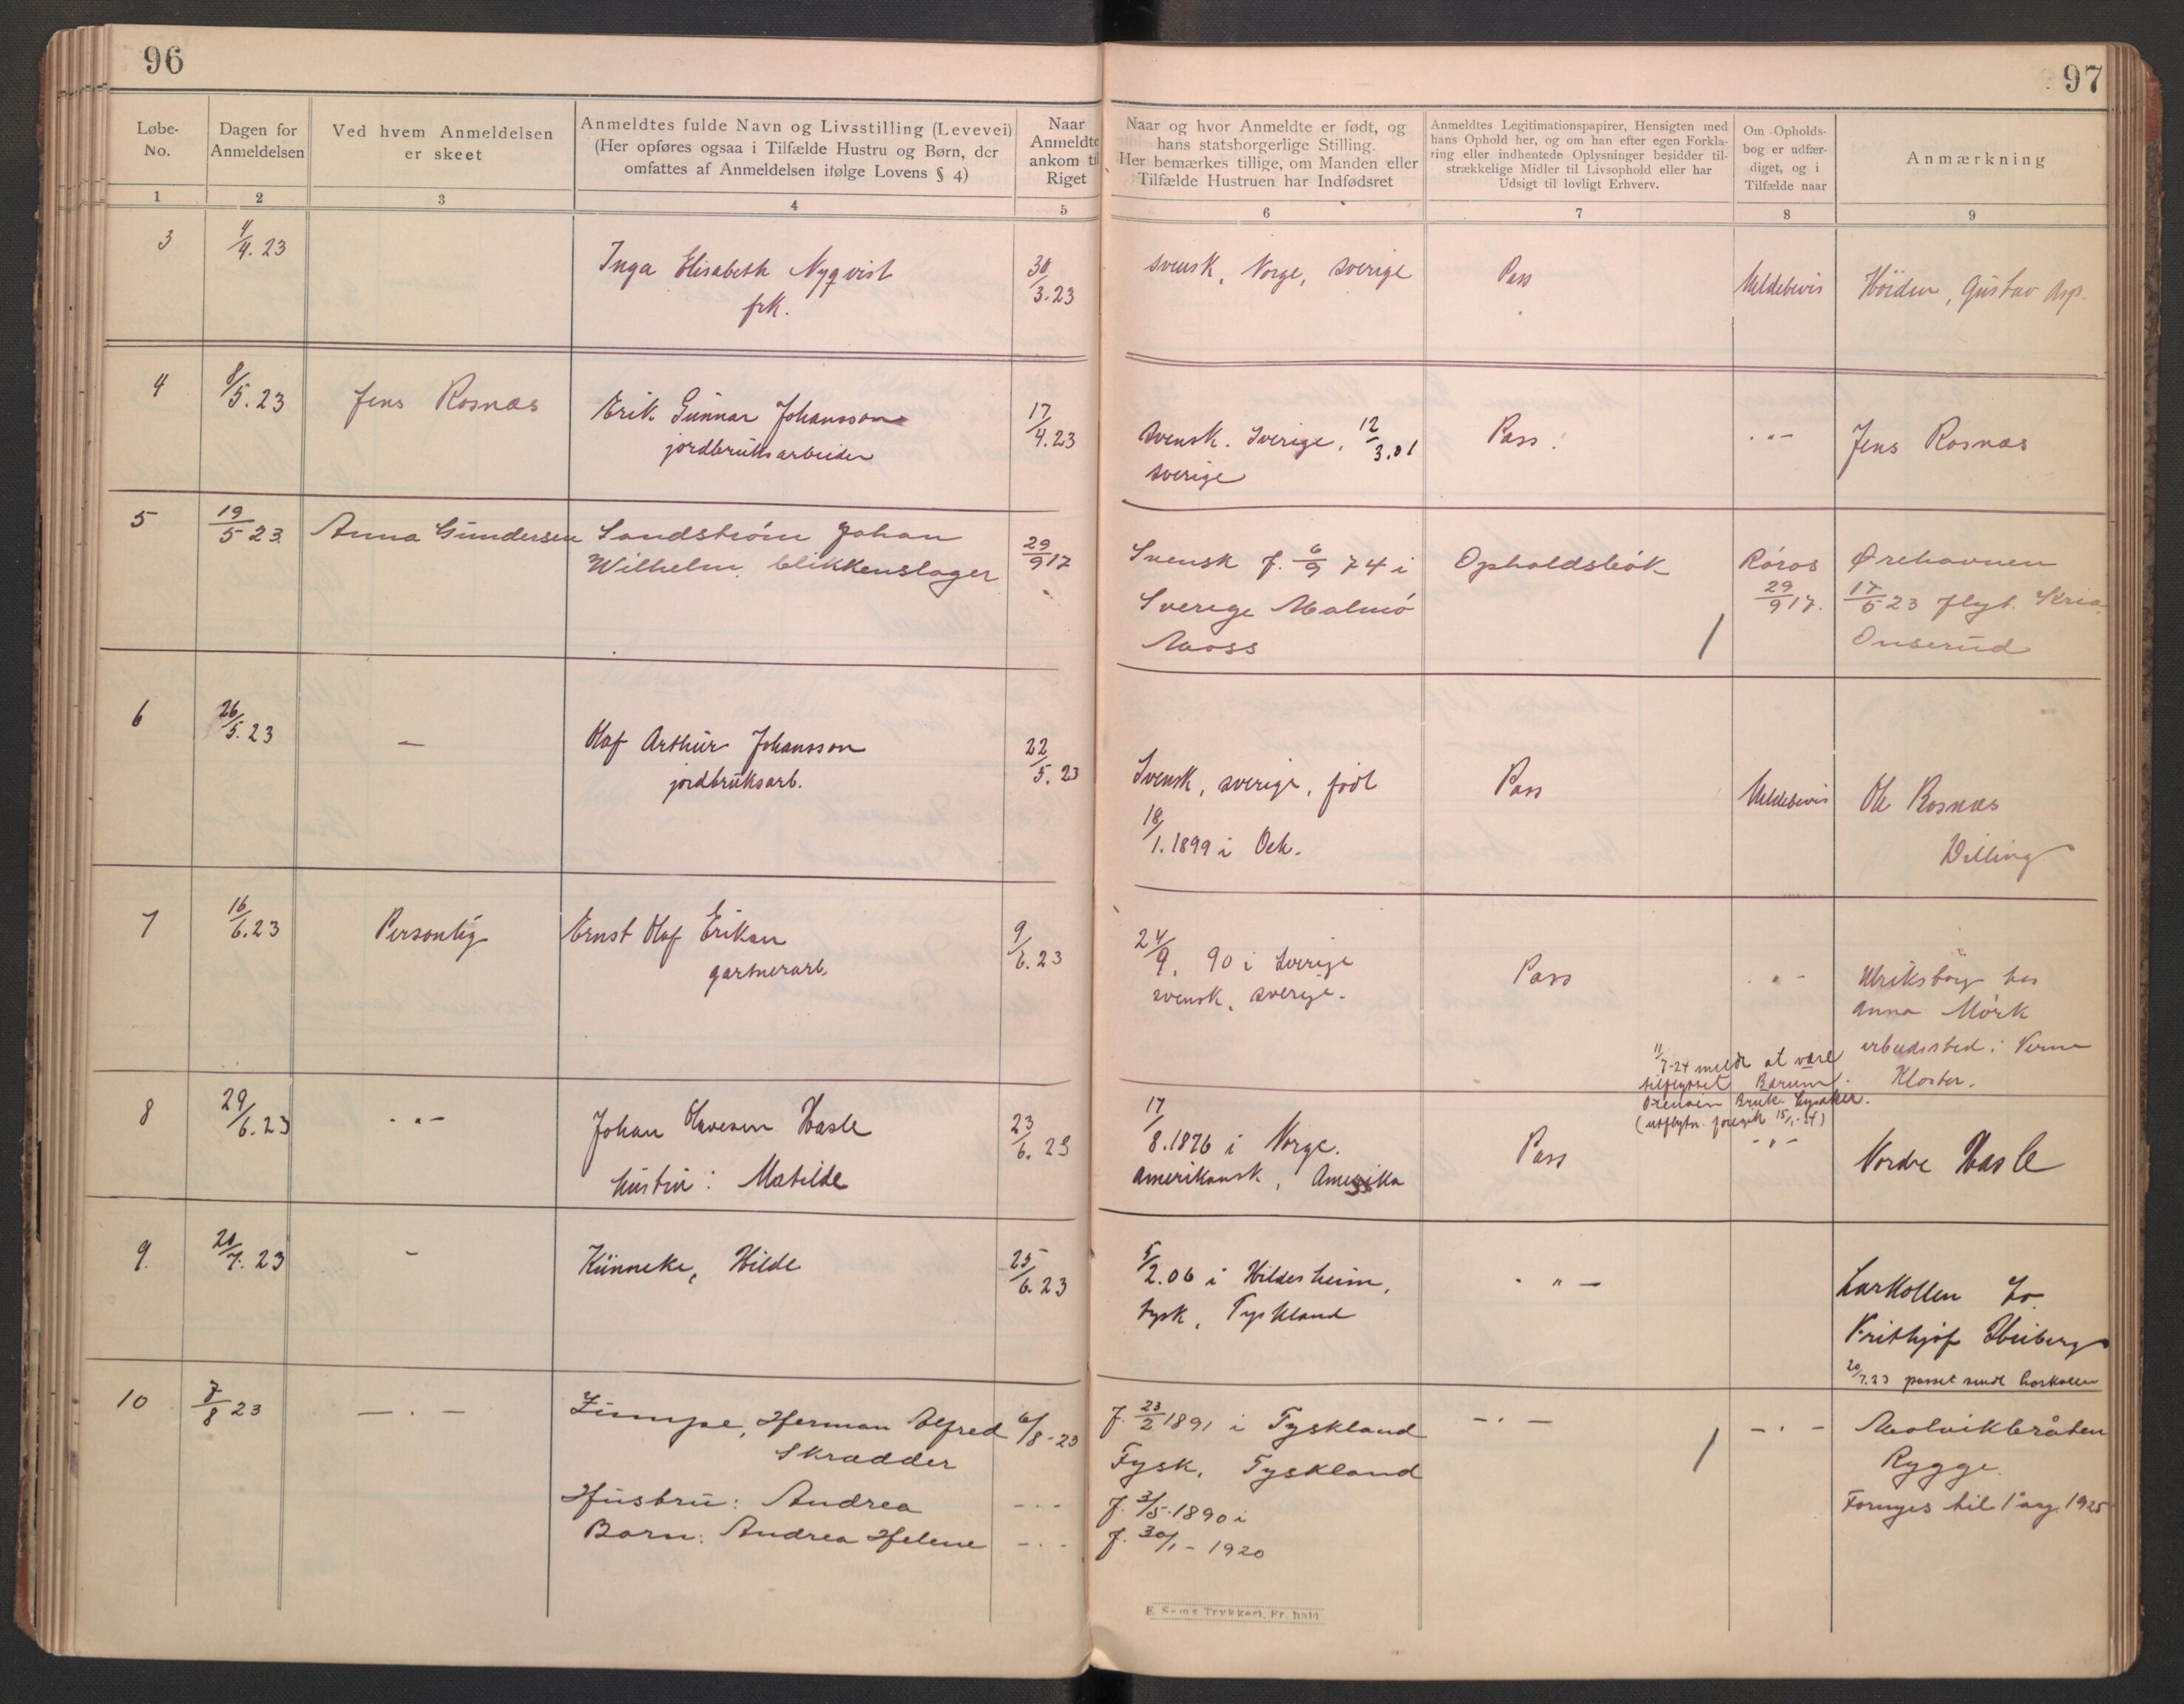 96
97
Løbe-No.
Dagen for Anmeldelsen
Ved hvem Anmeldelsen er skeet
Anmeldtes fulde Navn og Livsstilling (Levevei)
(Her opføres ogsaa i Tilfælde Hustru og Børn, der
omfattes af Anmeldelsen ifølge Lovens § 4)
Naar Anmeldte ankom til Riget
Naar og hvor Anmeldte er født, og
hans statsborgerlige Stilling.
Her bemærkes tillige, om Manden eller
Tilfælde Hustruen har Indfødsret
Anmeldtes Legitimationspapirer, Hensigten med
hans Ophold her, og om han efter egen Forkla-
ring eller indhentede Oplysninger besidder til-
strækkelige Midler til Livsophold eller har
Udsigt til lovligt Erhverv.
Om Opholds-
bog er udfær-
diget, og i
Tilfælde naar
Anmærkning
1 2 3 4 5 6 7 8 9
3 4/4.23 Inga Elisabeth Nyqvist 30/3.23 svensk, Norge, sverige Pass Meldebevis Höiden, Gustav Asp.
frk.
4 8/5.23 Jens Rosnæs Erik Gunnar Johansson 17/4.23 svensk. Sverige, 12/3.01 Pass. -"- Jens Rosnæs
jordbruksarbeider sverige
5 19/5 23 Anna Gundersen Sandström Johan 29/9 17 Svensk f. 6/9 74 i Opholdsbok Röros Ørehavnen
Wilhelm, blikkenslager Sverige Malmö 29/9 17. 17/5 23 flyt. Kria.
Moss Onserud
6 26/5.23 — Olaf Arthur Johansson 22/5.23 Svensk, sverige, födt Pass Meldebevis Ole Rosnæs
jordbruksarb. 18/1.1899 i Ock. Dilling
7 16/6.23 Personlig Ernst Olaf Eriksen 9/6.23 24/9. 90 i Sverige Pass " - Ulriksborg hos
gartnerarb. svensk, sverige. Anna Mörk
arbeidssted i Verne
Kloster.
11/7-24 meldt at være
tilflyttet Bærum.
Bruk. Lysaker.
(utflytn. foregik 15/1-24)
8 29/6.23 -"- Johan Olavesen Hasle 23/6.23 17/8.1876 i Norge. Pass -"- Nordre Hasle
hustru: Matilde Amerikansk, Amerika
9. 20/7.23 - Künneke, Hilde 25/6.23 5/2.06 i Hildesheim, -"- Larkollen
tysk, Tyskland Frithjof Heiberg
20/7.23 passet sendt Larkollen
10 7/8 23 —"— Zumpe, Herman Alfred 6/8-23 f. 23/2 1891 i Tyskland -"- -"- Molvikbråten
Skrædder Tysk, Tyskland Rygge.
Hustru: Andrea -"- f. 3/5-1890 i Fornyes til 1 aug. 1925
Barn: Andrea Helene -"- f. 30/1-1920
E. Sem's Trykkeri, Fr.hald